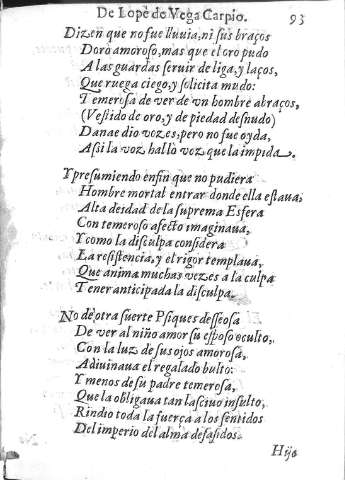 De Lope de Vega Carpio. 93
Dizen que no fue lluuia, ni sus braços
Doro amoroso, mas que el oro pudo
A las guardas seruir de liga, y laços,
Que ruega ciego, y solicita mudo:
Temerosa de ver de vn hombre abraços,
(Vestido de oro, y de piedad desnudo)
Danae dio vozes; pero no fue oyda,
Assi la voz hallò voz que la impida.
Y presumiendo enfin que no pudiera
Hombre mortal entrar donde ella estaua,
Alta deidad de la suprema Esfera
Con temeroso afecto imaginaua,
Y como la disculpa considera
La resistencia, y el rigor templaua,
Que anima muchas vezes a la culpa
Tener anticipada la disculpa.
No de otra suerte Psiques desseosa
De ver al niño amor su esposo oculto,
Con la luz de sus ojos amorosa,
Adiuinaua el regalado bulto:
Y menos de su padre temerosa,
Que la obligaua tan lasciuo insulto,
Rindio toda la fuerça a los sentidos
Del imperio del alma desasidos.
Hijo